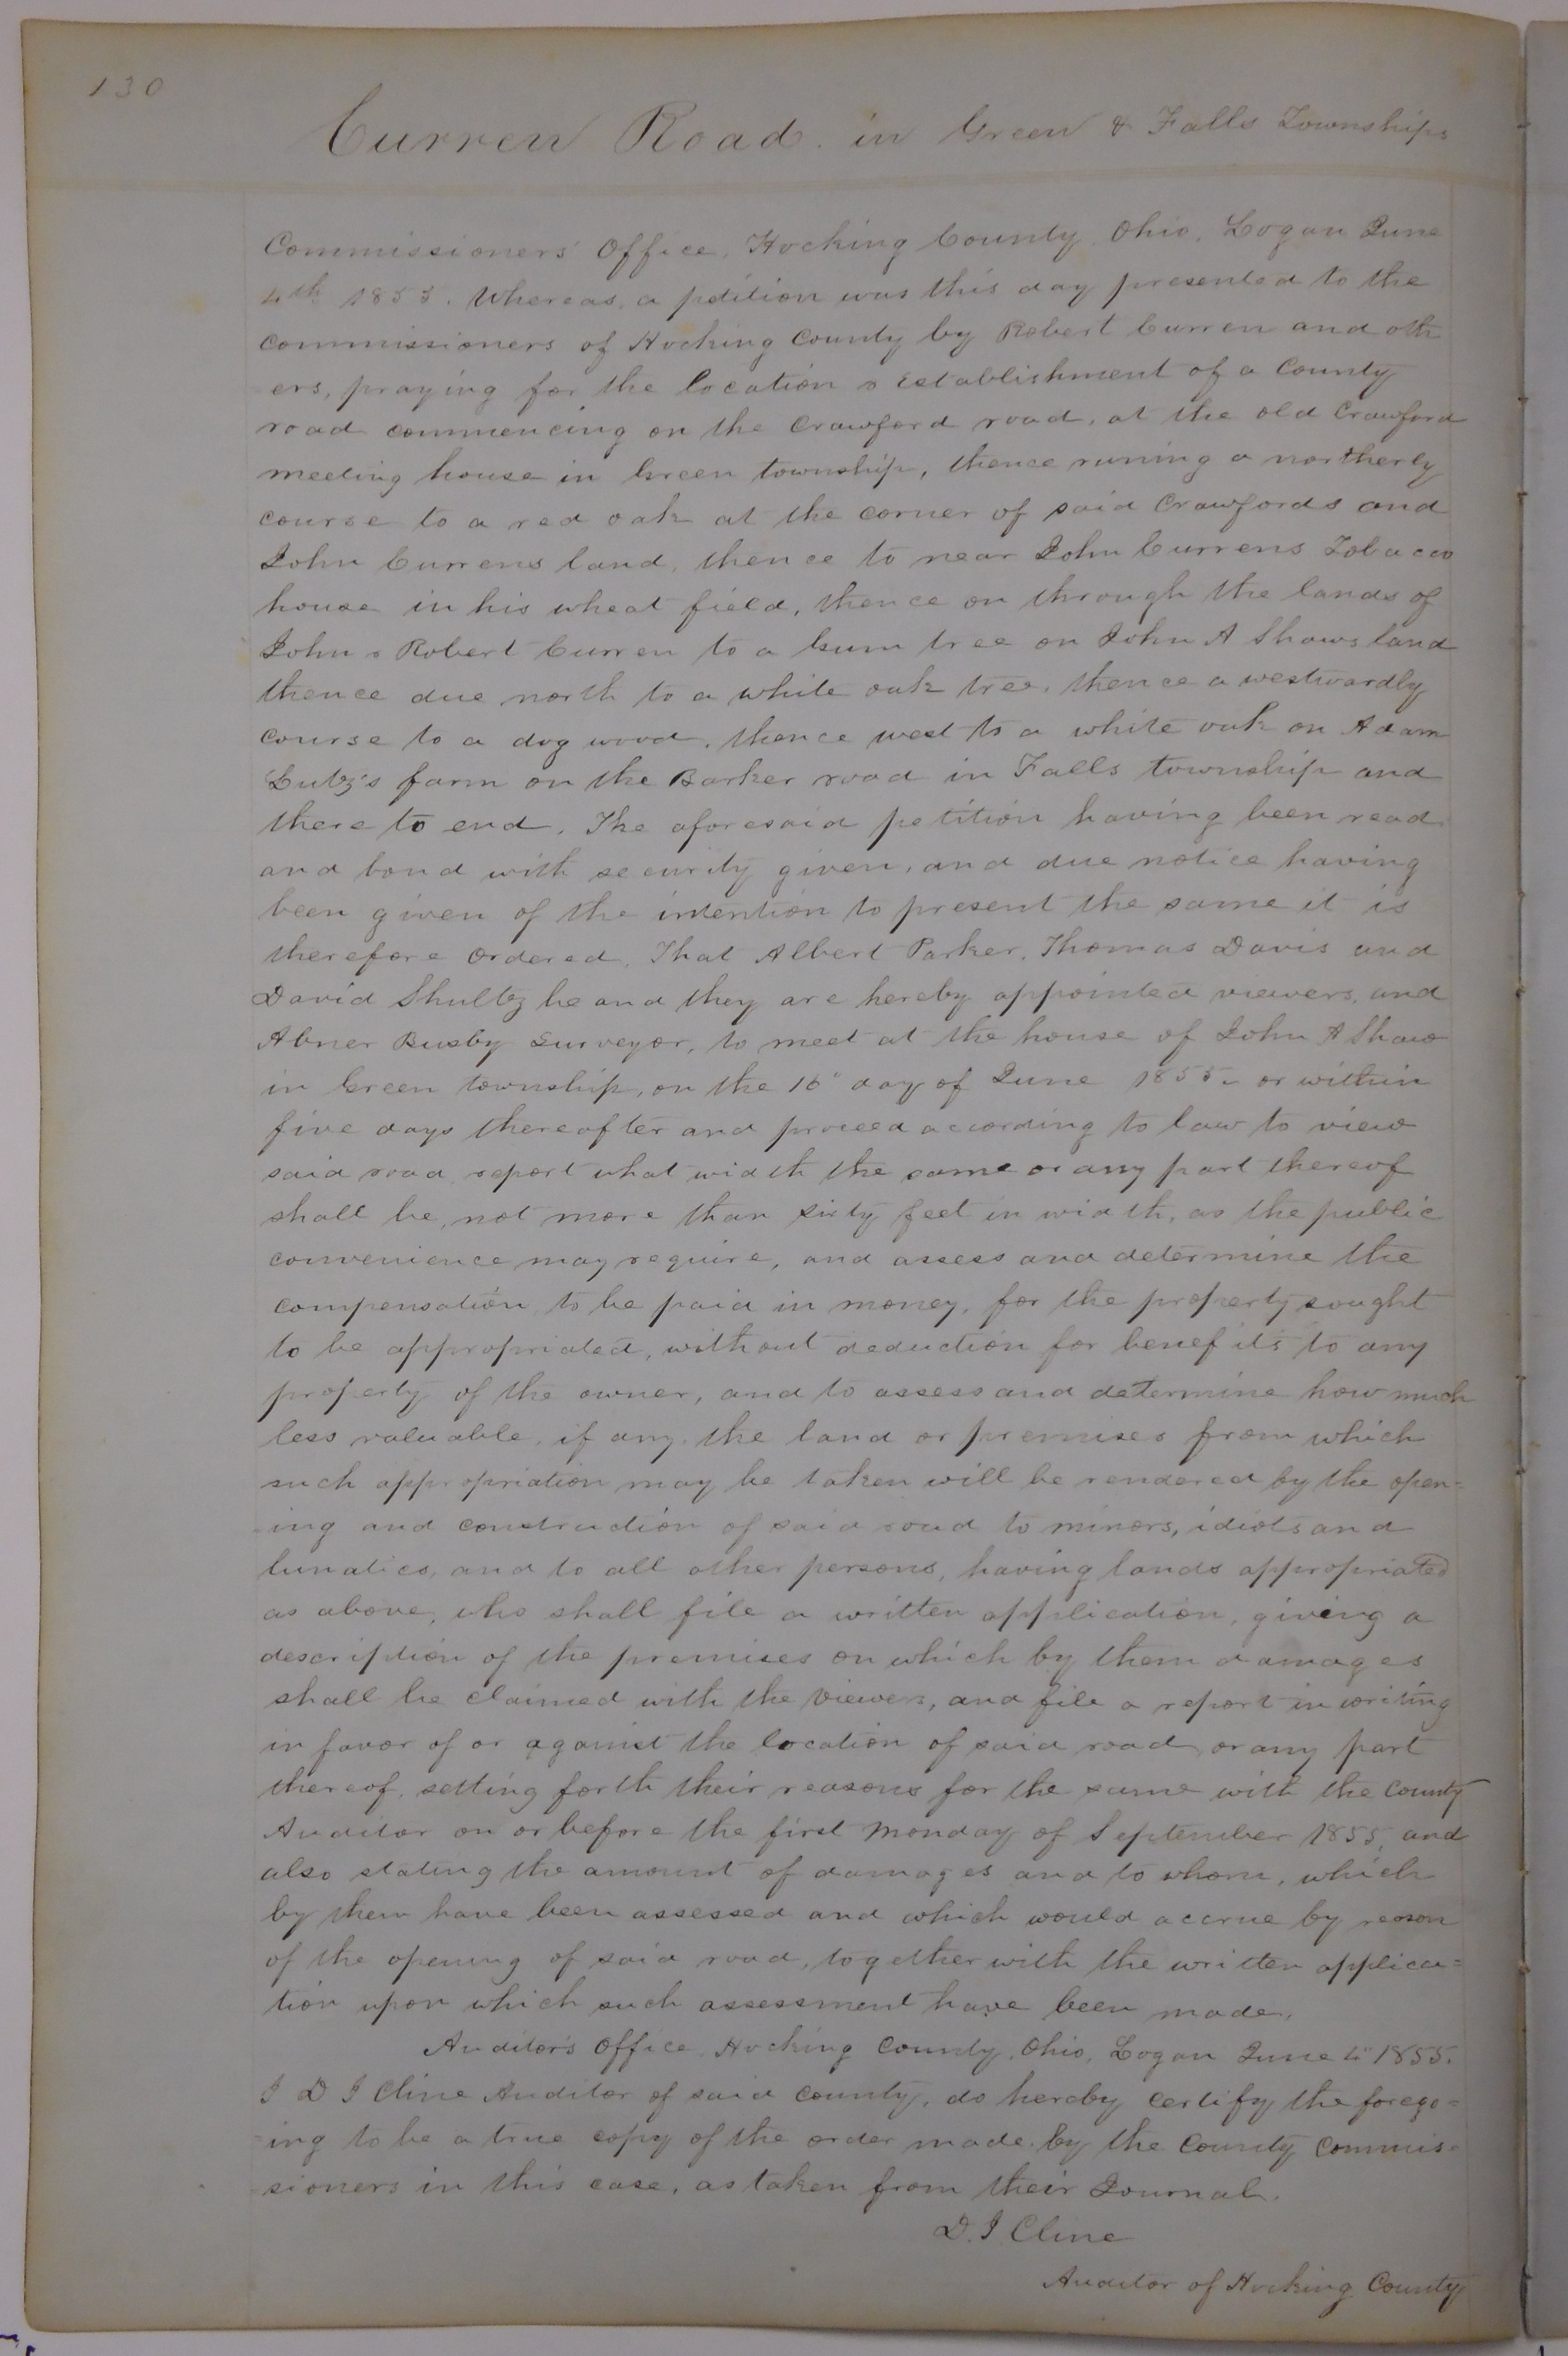 130
Curren Road. in Green & Falls Townships
Commissioners' Office, Hocking County, Ohio, Logan June
4th 1855. Whereas, a petition was this day presented to the
commissioners of Hocking County by Robert Curren and oth
ers, praying for the location & establishment of a County
road commencing on the Crawford road, at the old Crawford
meeting house in Green township, thence runing a northerly
course to a red oak at the corner of said Crawfords and
John Currens land, thence to near John Currens Tobacco
house in his wheat field, thence on through the lands of
John & Robert Curren to a Gum tree on John A Shaws land
thence due north to a white oak tree, thence a westwardly
course to a dog wood, thence west to a white oak on Adam
Lutz's farm on the Barker road in Falls township and
there to end. The aforesaid petition having been read
and bond with security given, and due notice having
been given of the intention to present the same it is
therefore Ordered, That Albert Parker, Thomas Davis and
David Shultz be and they are hereby appointed viewers, and
Abner Busby Surveyor, to meet at the house of John A Shaw
in Green township, on the 16" day of June 1855. or within
five days thereafter and proceed according to law to view
said road, report what width the same or any part thereof
shall be, not more than sixty feet in width, as the public
convenience may require, and assess and determine the
compensation to be paid in money, for the property sought
to be appropriated, without deduction for benefits to any
property of the owner, and to assess and determine how much
less valuable, if any, the land or premises from which
such appropriation may be taken will be rendered by the open-
-ing and construction of said road to minors, idiots and
lunatics, and to all other persons, having lands appropriated
as above, who shall file a written application, giving a
description of the premises on which by them damages
shall be claimed with the viewers, and file a report in writing
in favor of or against the location of said road, or any part
thereof, setting forth their reasons for the same with the County
Auditor on or before the first Monday of September 1855, and
also stating the amount of damages and to whom, which
by them have been assessed and which would accrue by reason
of the opening of said road, together with the written applica=
tion upon which such assessment have been made.
Auditor's Office, Hocking County, Ohio, Logan June 4" 1855.
I D I Cline Auditor of said County, do hereby certify the forego=
-ing to be a true copy of the order made by the County Commis=
-sioners in this case, as taken from their Journal.
D. I. Cline
Auditor of Hocking County